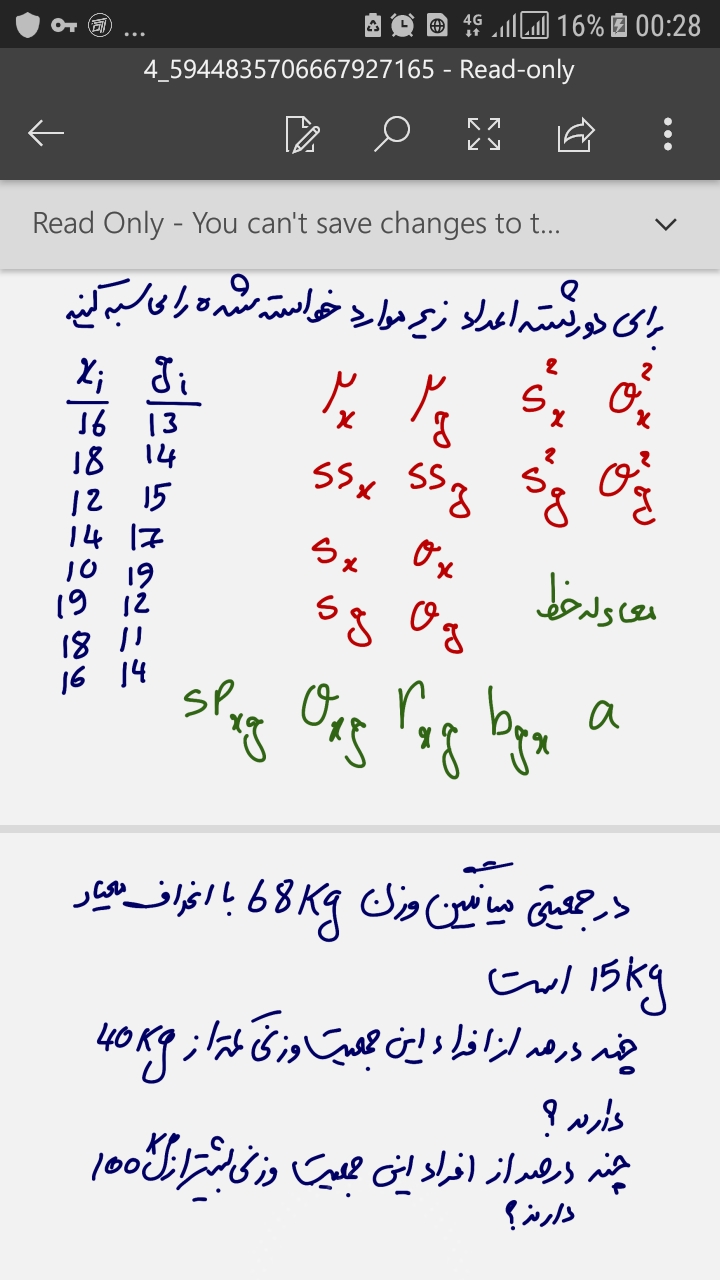 16% 00:28
4G
4_5944835706667927165 - Read-only
Read Only - You can't save changes to t...
برای دو رشته اعداد زیر موارد خواسته شده را محاسبه کنید
xᵢ yᵢ
16 13
18 14
12 15
14 17
10 19
19 12
18 11
16 14
μx μy s²x σ²x
ssx ssy s²y σ²y
sx σx
sy σy
معادله خط
SPxy σxy rxy byx a
در جمعیتی میانگین وزن 68 Kg با انحراف معیار
15 Kg است
چند درصد از افراد این جمعیت وزنی کمتر از 40 Kg
دارند ؟
چند درصد از افراد این جمعیت وزنی بیشتر از 100 Kg
دارند ؟